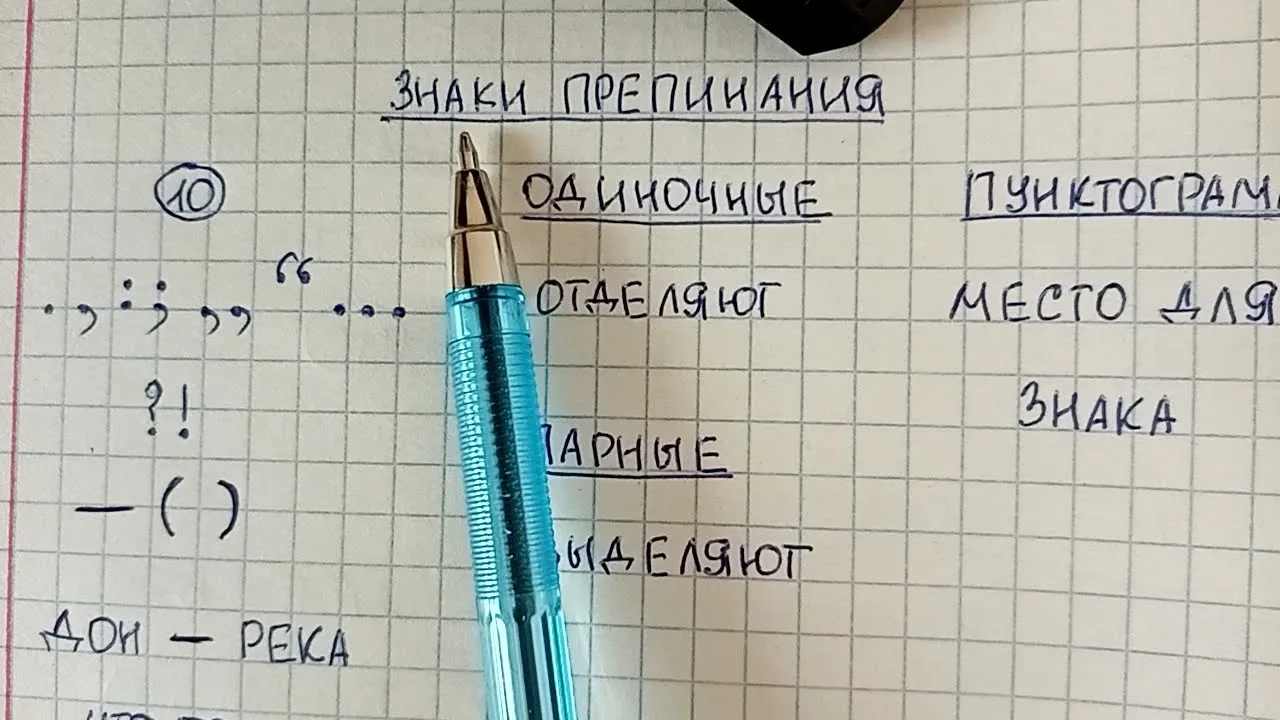 ЗНАКИ ПРЕПИНАНИЯ
10
. , : ; ,, “ ...
? !
— ( )
ДОН — РЕКА
ОДИНОЧНЫЕ
ОТДЕЛЯЮТ
АРНЫЕ
ЫДЕЛЯЮТ
ПУНКТОГРАМ
МЕСТО ДЛЯ
ЗНАКА